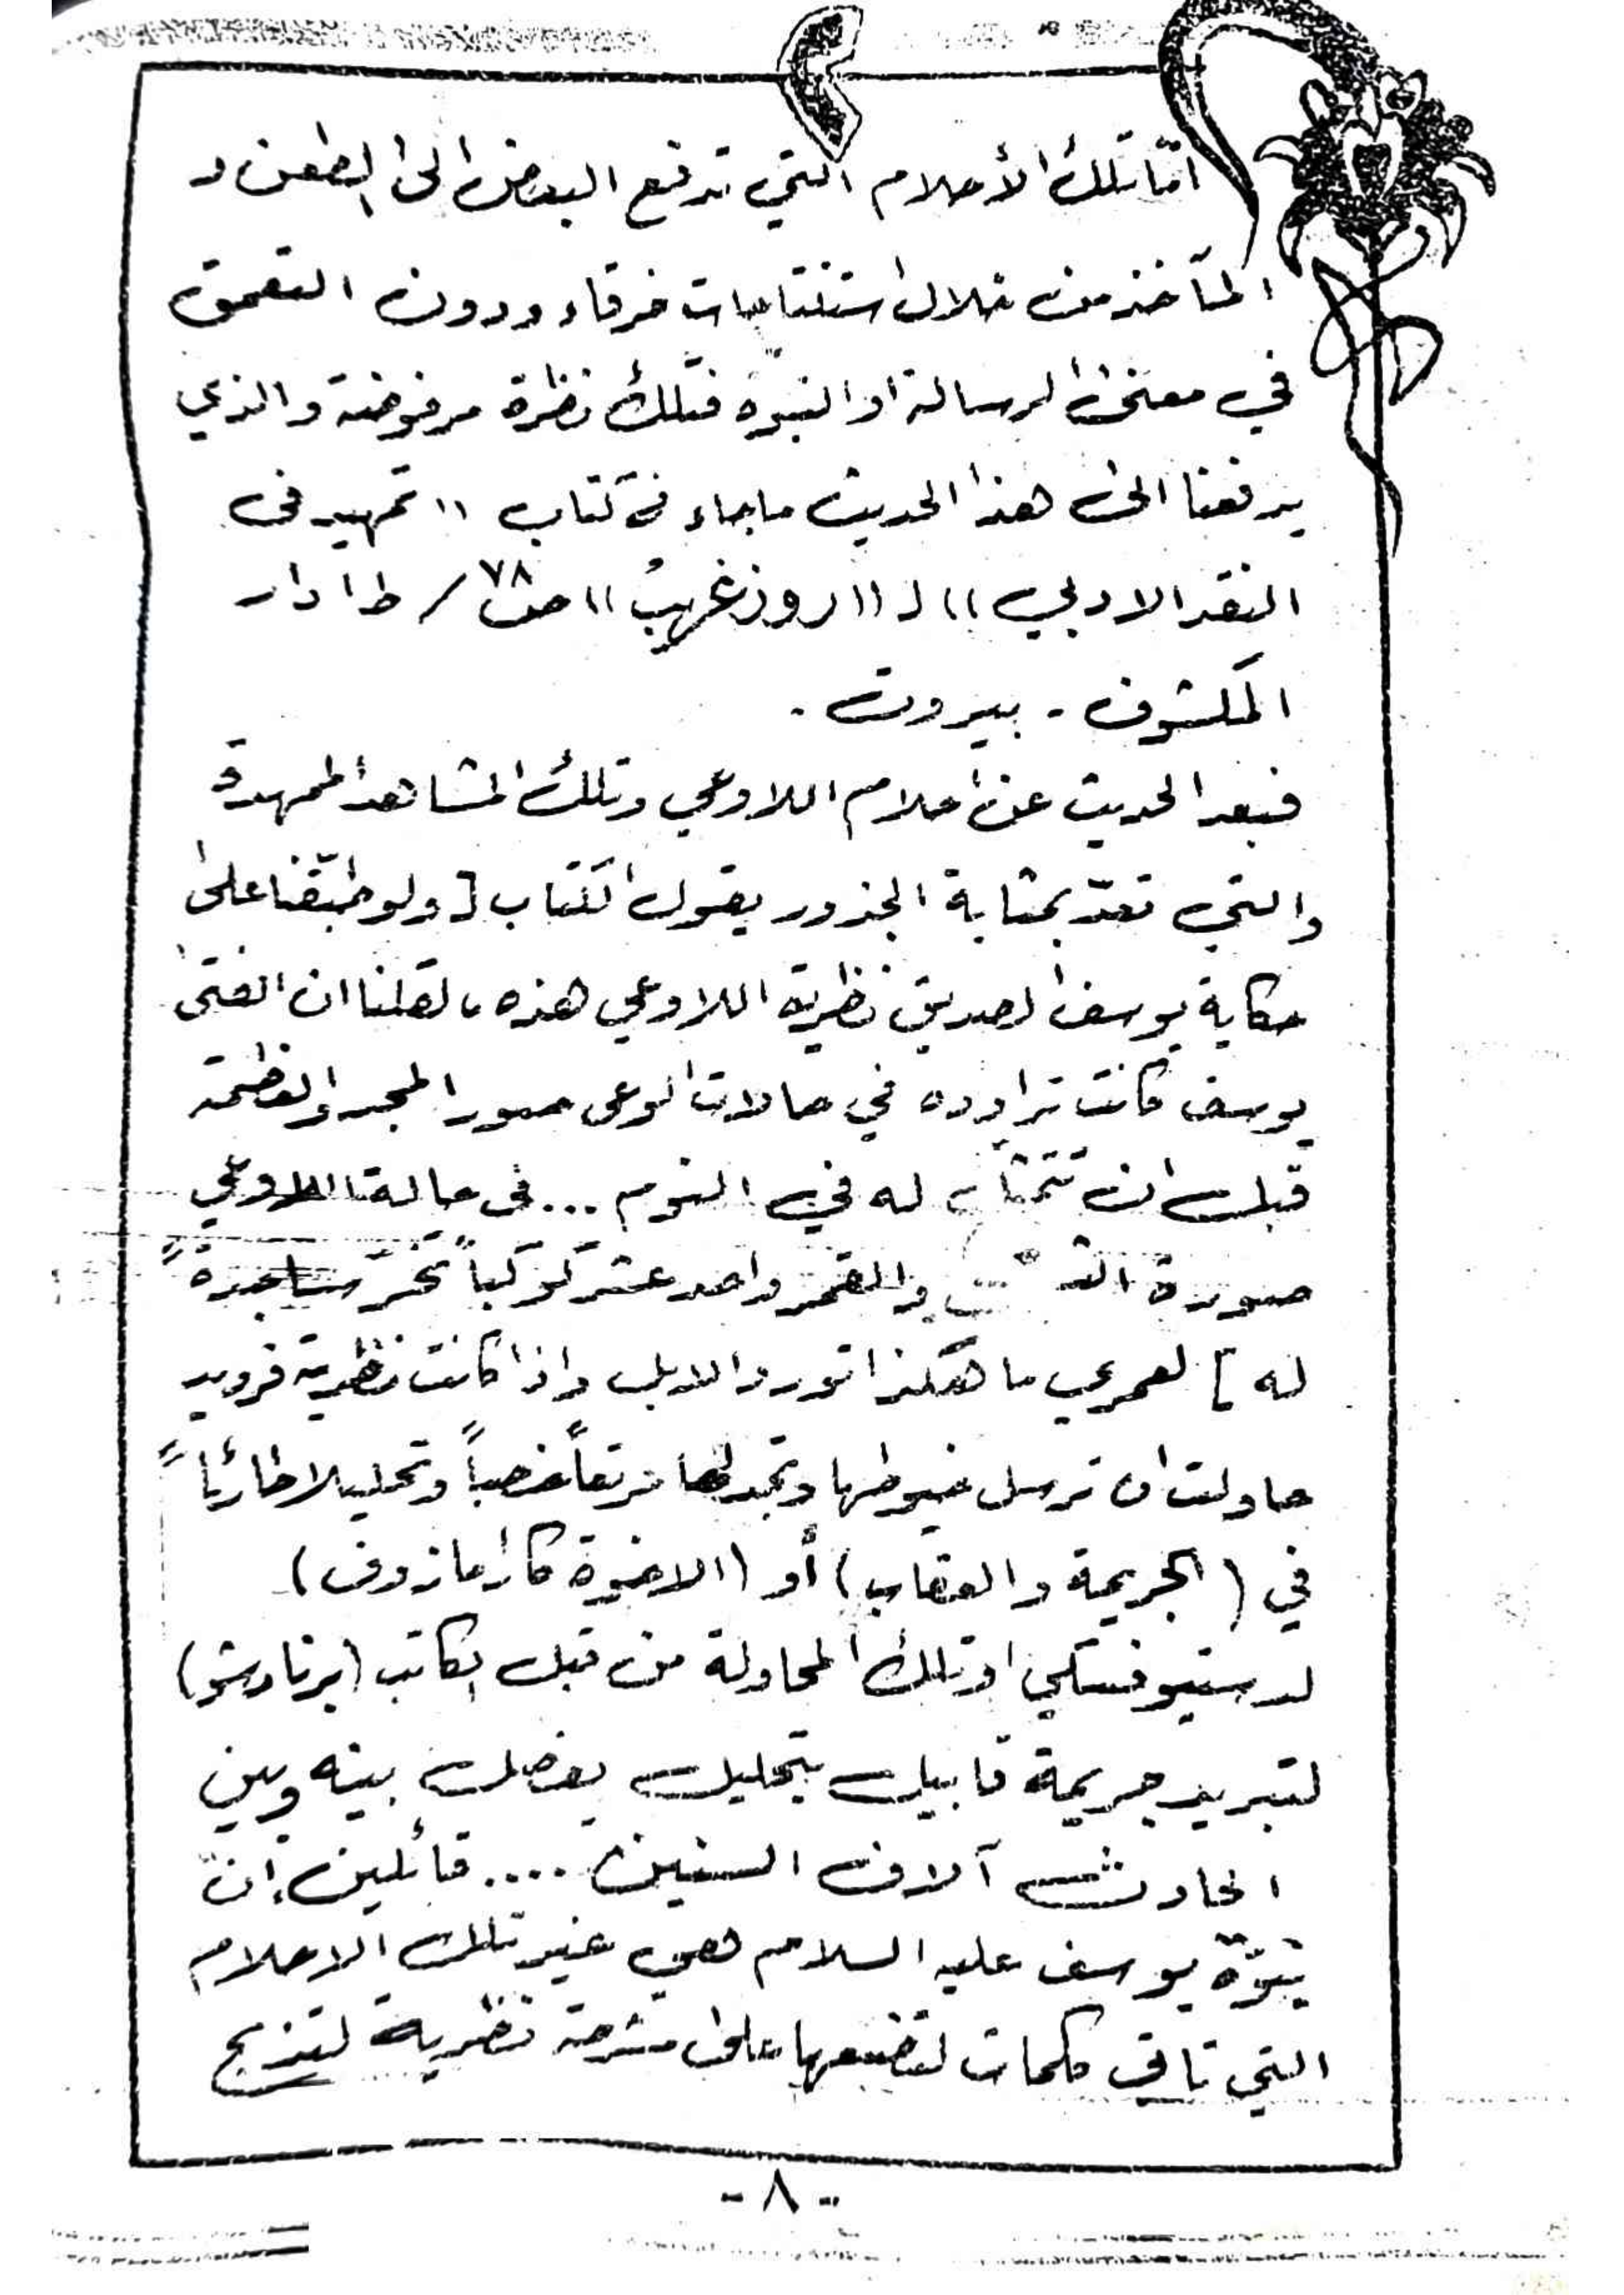 امّا تلك الأحلام التي تدفع البعض الى الطعن و
المآخذ من خلال استنتاجات خرقاء ودون التعمق
في معنى الرسالة او النبوّه فتلك نظرة مرفوضة والذي
يدفعنا الى هذا الحديث ماجاء في كتاب (( تمهيد في
النقد الادبي )) لـ ((روز غريب)) ص ٧٨ / ط١ دار
المكشوف - بيروت .
فبعد الحديث عن احلام اللاوعي وتلك المشاهد الممهدة
والتي تعدّ بمثابة الجذور يقول الكتاب [ ولو طبّقنا على
حكاية يوسف الصديق نظرية اللاوعي هذه ، لقلنا ان الفتى
يوسف كانت تراوده في حالات الوعي صور المجد والعظمة
قبل ان تتمثل له في النوم ... في حالة اللاوعي
صورة والقمر واحد عشر كوكباً تخرّ ساجدةً
له ] لعمري ما هكذا تورد الابل واذا كانت نظرية فرويد
حاولت ان ترسل خيوطها وتجد لها مرتعاً خصباً وتحليلا
في (الجريمة والعقاب) أو (الاخوة كارامازوف)
لدستيوفسكي او تلك المحاولة من قبل الكاتب (برنادشو)
لتبرير جريمة قابيل بتحليل يفصل بينه وبين
الحادث آلاف السنين .... قائلين إن
نبوّة يوسف عليه السلام هي غير تلك الاحلام
التي تأتي كلمات لتضعها على مشرحة نظرية لتذبح
- ٨ -